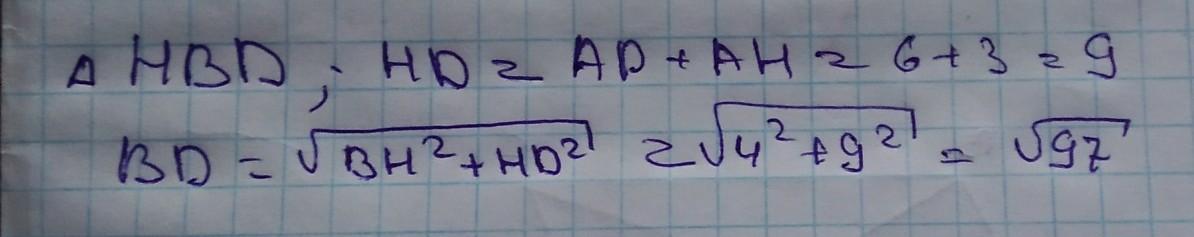 △ HBD; HD = AD + AH = 6 + 3 = 9
BD = √(BH² + HD²) = √(4² + 9²) = √97